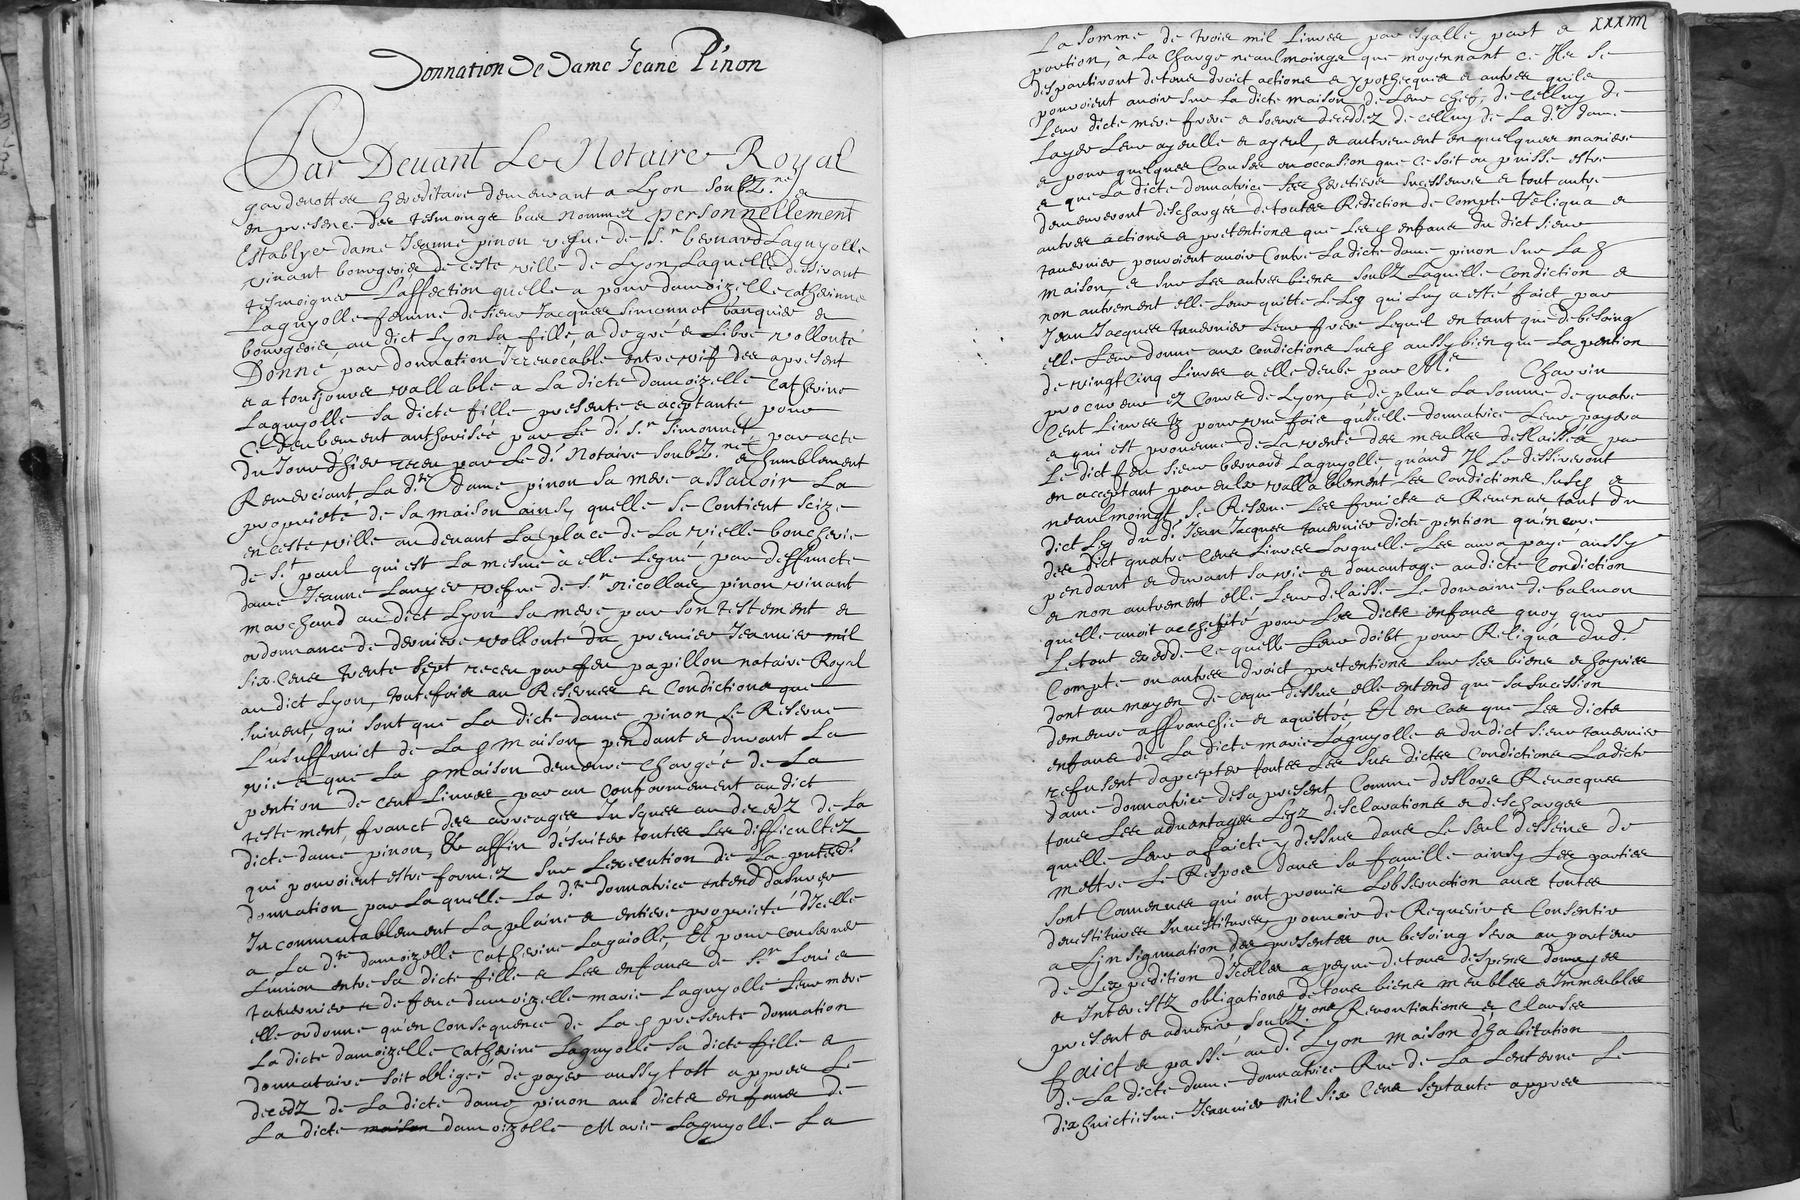 Donnation de dame Jeane Pinon
Par Devant Le Notaire Royal
gardenottes hereditaire demeurant a Lyon soubz.né &
en presence des tesmoings bas nommez personnellement
Establye dame Jeanne pinon vefue de Sr bernard Laguyolle
vivant bourgeois de ceste ville de Lyon Laquelle dessirant
tesmoigner Laffection quelle a pour damoizelle catherinne
Laguyolle femme de sieur Jacques Simonnet banquier &
bourgeois au dict Lyon sa fille, a de gré & Libre vollonté
Donné par donnation Irrevocable entre vifz des apresent
& a tousjours vallable a La dicte damoizelle Catherine
Laguyolle sa dicte fille presente & aceptante pour
Ce deubement authorisée par Le d. sr Simonnet par acte
du Jourdhier receu par Le d. Notaire soubz.né & humblement
Remerciant La d.te dame pinon sa mere assavoir La
proprieté de sa maison ainsy quelle se Contient scize
en ceste ville au devant La place de La vielle boucherie
de St paul qui est La mesme à elle Legué par deffuncte
dame Jeanne Layer vefue de sr nicollas pinon vivant
marchand au dict Lyon sa mere par son testement &
ordonnance de derniere vollonté du premier Jeanvier mil
six Cens trente sept receu par feu papillon notaire Royal
au dict Lyon, toutefois au Reserves & Condictions que
suivent, qui sont que La dicte dame pinon se Reserve
L'usuffruict de La sᵈ maison pendant & durant La
vie & que La sᵈ maison demeure chargée de La
pention de cent Livres par an conformement au dict
testement, franct des arreages Jusques au decedz de La
dicte dame pinon, Et affin d'esviter toutes Les difficultez
qui pouroient estre formez sur Lexecution de La pnte
donnation par Laquelle La d.te donnatrice entend dasseurer
Incommutablement La plaine & entiere proprieté d'Icelle
a La d.te damoizelle catherine Lagaiolle, Et pour conserver
Lunion entre sa dicte fille & Les enfans de sr Louis
tavernier & de feue damoizelle marie Laguyolle Leur mere
elle ordonne qu'en Consequence de La sᵈ presente donnation
La dicte damoizelle catherine Laguyolle sa dicte fille &
donnataire soit obligée de payer aussy tost appres Le
decedz de La dicte dame pinon aux dictz enfans de
La dicte maison damoizelle Marie Laguyolle La
xxxiiii
La somme de trois mil Livres par esgalle part &
portion, à La Charge neaulmoings que moyennant ce Ilz se
despartiront de tous droict actions & ypothecques & autres quilz
pouroient avoir sur La dicte maison de Leur chef, de celluy de
Leur dicte mere frere & soeurs decedez de celluy de La d.te dame
Layer Leur ayeulle & ayeul, & autrement en quelques maniere
& pour quelques Causes ou occasion que ce soit ou puisse estre
& que La dicte donnatrice ses heretiers successeurs & tout autre
demeureront deschargés de toutes Rediction de Compte Reliqua &
autres actions & pretentions que Les sᵈ enfans du dict sieur
tavernier pouroient avoir Contre La dicte dame pinon sur La sᵈ
maison, & sur Les autres biens soubz Laquelle Condiction &
non autrement elle Leur quitte Le Leg qui Luy a esté faict par
Jean Jacques tavernier Leur frere Lequel en tant que de besoing
elle Leur donne aux condictions susᵈ aussy bien que La pention
de vingt Cinq Livres a elle deube par Mr Charvin
procureur ez Cours de Lyon, & de plus La somme de quatre
Cent Livres tz pour une fois qu'Icelle donnatrice Leur payera
& qui est provenue de La vente des meubles deslaissés par
Le dict feu sieur bernard Laguyolle quand Ilz Le dessireront
en acceptant par eulx vallablement Les Condictions susᵈ &
neaulmoings se Reserve Les fruictz & Revenus tant du
dict Leg du d. Jean Jacques tavernier dicte pention qu'encore
des dict quatre Cens Livres Lorsquelle Les aura payé aussy
pendant & durant sa vie & davantage au dicte Condiction
& non autrement elle Leur delaisse Le domaine de balmon
quelle avoit achepté pour Les dictz enfans quoy que
Le tout excedde ce quelle Leur doibt pour Reliqua dud.
Compte ou autres droict pretentions sur ses biens & hoyries
dont au moyen de ceque dessus elle entend que sa sucession
demeure affranchie & aquittée Et en Cas que Les dictz
enfans de La dicte marie Laguyolle & du dict sieur tavernier
refusent d'accepter toutes Les sus dictes Condictions La dicte
dame donnatrice desapresent Comme deslors Revocques
tous Les advantages Legz desclarations & descharges
quelle Leur a faictz y dessus dans Le seul desseins de
mettre Le Respos dans sa famille ainsy Les parties
sont Convenues qui ont promis Lobservation avec toutes
devestitures Investitures pouvoir de Requerir & Consentir
a L'Insignuation des presentes ou besoing sera au porteur
de L'expedition d'Icelles a peyne de tous despens domages
& Interestz obligations de tous biens meubles & Immeubles
present & advenir soubz. ons Renontiations & Clauses
faict & passé aud. Lyon maison dhabitation
de La dicte dame donnatrice Rue de La Lenterne Le
dixhuictiesme Jeanvier mil six Cens septante appres